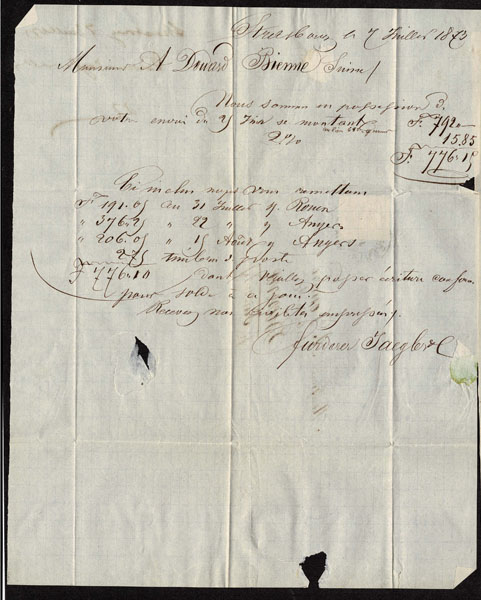 Strasbourg le 7 Juillet 1873
Monsieur A Druard Bienne Suisse /
Nous sommes en possession d.
votre envoi du 25 Juin se montant F. 792.—
2 % 15.85
F. 776.15
Ci inclus nous vous remettons
F. 191.05 au 31 Juillet s/ Rouen
" 376.25 " 22 " " Angers
" 206.05 " 15 Août " Angers
2.75 timbres poste
F 776.10 dont veuillez passer écriture conforme
pour solde à ce jour.
Recevez nos civilités empressées.
Fürderer Jaegler & C